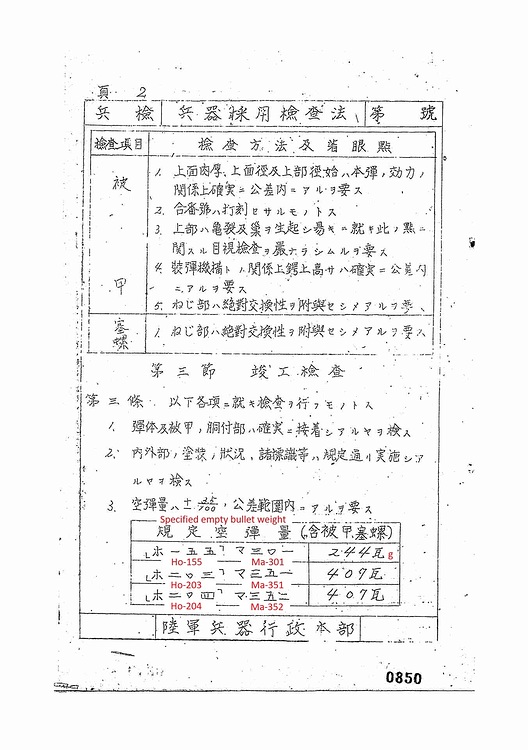 頁 2
兵 檢 兵器採用檢查法 第 號
檢查項目 檢查方法及着眼點
被甲
1. 上面肉厚、上面徑及上部徑始ハ本彈ノ効力ノ
関係上確実ニ公差内ニアルヲ要ス
2. 合番號ハ打刻セサルモノトス
3. 上部ハ亀裂及巣ヲ生起シ易キニ就キ此ノ點ニ
関スル目視檢查ヲ嚴ナラシムルヲ要ス
4. 装彈機構トノ関係上鍔上高サハ確実ニ公差内
ニアルヲ要ス
5. ねじ部ハ絶對交換性ヲ附與セシメアルヲ要ス
塞螺
1. ねじ部ハ絶對交換性ヲ附與セシメアルヲ要ス
第三節 竣工檢查
第三條 以下各項ニ就キ檢查ヲ行フモノトス
1. 彈体及被甲ノ胴付部ハ確実ニ接着シアルヤヲ検ス
2. 内外部ノ塗装ノ狀況、諸標識等ハ規定通リ実施シア
ルヤヲ検ス
3. 空彈量ハ± 公差範囲内ニアルヲ要ス
Specified empty bullet weight
規定空彈量(含被甲塞螺)
「ホ一五五」マ三〇一 244瓦 g
Ho-155 Ma-301
「ホ二〇三」マ三五一 409瓦
Ho-203 Ma-351
「ホ二〇四」マ三五二 407瓦
Ho-204 Ma-352
陸軍兵器行政本部
0850